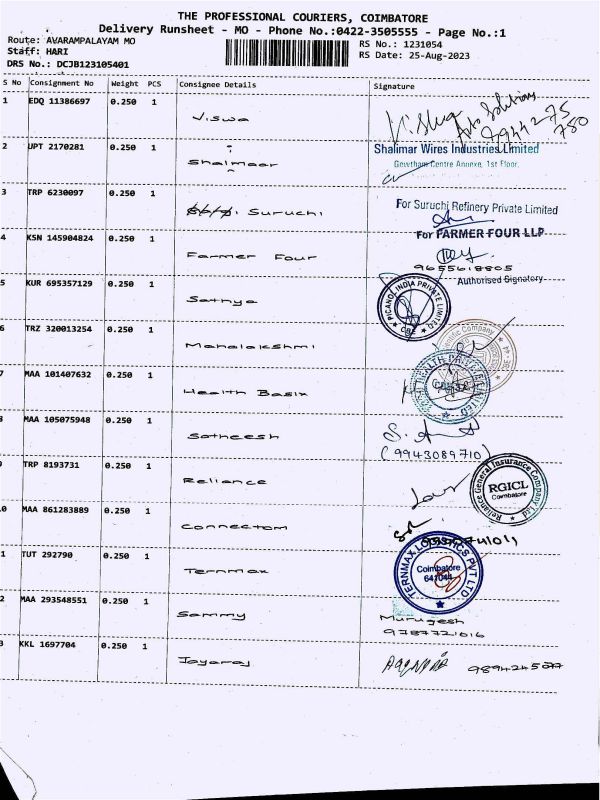 THE PROFESSIONAL COURIERS, COIMBATORE
Delivery Runsheet - MO - Phone No.:0422-3505555 - Page No.:1
Route: AVARAMPALAYAM MO
RS No.: 1231054
Staff: HARI
RS Date: 25-Aug-2023
DRS No.: DCJB123105401
S No Consignment No Weight PCS Consignee Details Signature
1 EDQ 11386697 0.250 1 Viswa
2 UPT 2170281 0.250 1 Shalmaar Shalimar Wires Industries Limited
Centre Annexe, 1st Floor,
3 TRP 6230097 0.250 1 Suruchi For Suruchi Refinery Private Limited
4 KSN 145904824 0.250 1 Farmer Four For FARMER FOUR LLP
9655618805
Authorised Signatory
5 KUR 695357129 0.250 1 Sathya PICANOL INDIA PRIVATE LIMITED CBE
6 TRZ 320013254 0.250 1 Mahalakshmi
7 MAA 101407632 0.250 1 Health Basix
8 MAA 105075948 0.250 1 Satheesh
(9943089710)
9 TRP 8193731 0.250 1 Reliance Reliance General Insurance Company Ltd RGICL Coimbatore
0 MAA 861283889 0.250 1 Connectom
1 TUT 292790 0.250 1 Ternmax TERNMAX LOGISTICS PVT LTD Coimbatore 641044
2 MAA 293548551 0.250 1 Sammy Murugesh
9787721016
3 KKL 1697704 0.250 1 Jayaraj